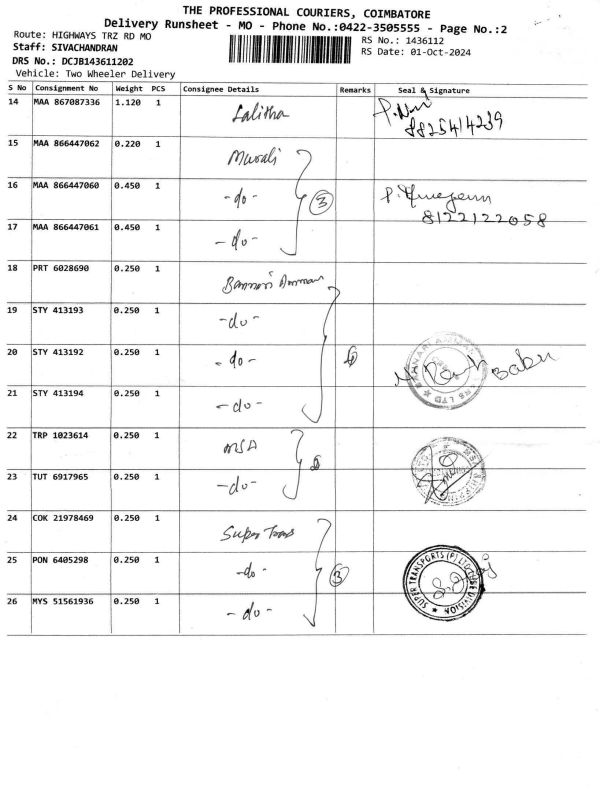 THE PROFESSIONAL COURIERS, COIMBATORE
Delivery Runsheet - MO - Phone No.:0422-3505555 - Page No.:2
Route: HIGHWAYS TRZ RD MO
RS No.: 1436112
Staff: SIVACHANDRAN
RS Date: 01-Oct-2024
DRS No.: DCJB143611202
Vehicle: Two Wheeler Delivery
S No Consignment No Weight PCS Consignee Details Remarks Seal & Signature
14 MAA 867087336 1.120 1 Lalitha
8825414239
15 MAA 866447062 0.220 1 Murali
16 MAA 866447060 0.450 1 -do- 3
8122122058
17 MAA 866447061 0.450 1 -do-
18 PRT 6028690 0.250 1 Bannari Amman
19 STY 413193 0.250 1 -do-
20 STY 413192 0.250 1 -do- Babu
21 STY 413194 0.250 1 -do-
22 TRP 1023614 0.250 1 MSA
23 TUT 6917965 0.250 1 -do-
24 COK 21978469 0.250 1 Super Trans
25 PON 6405298 0.250 1 -do- 3
SUPER TRANSPORTS (P) LTD DIVISION
26 MYS 51561936 0.250 1 -do-